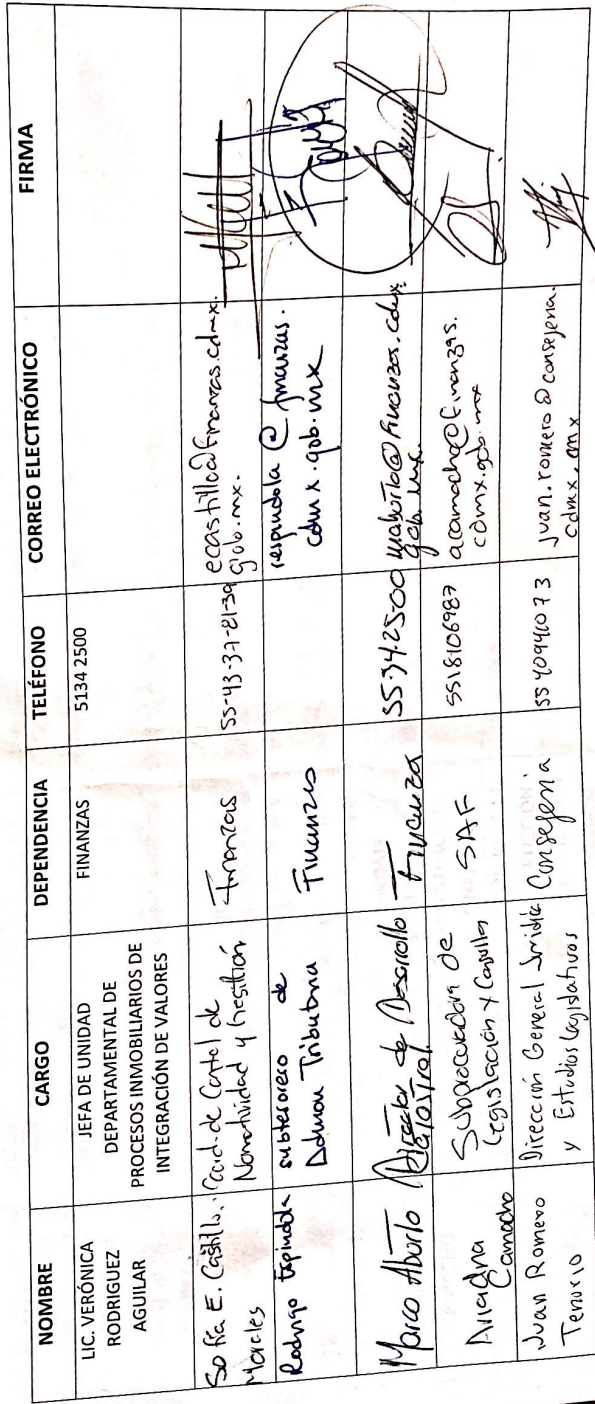 NOMBRE
CARGO
DEPENDENCIA
TELÉFONO
CORREO ELECTRÓNICO
FIRMA
LIC. VERÓNICA
RODRIGUEZ
AGUILAR
JEFA DE UNIDAD
DEPARTAMENTAL DE
PROCESOS INMOBILIARIOS DE
INTEGRACIÓN DE VALORES
FINANZAS
5134 2500
Sofía E. Castillo
Morales
Coord. de Control de
Normatividad y Gestión
Finanzas
55-43-37-81-39
ecastillo@finanzas.cdmx.
gob.mx.
Rodrigo Espindola
subtesorero de
Admon Tributaria
Finanzas
respindola@finanzas.
cdmx.gob.mx
Marco Aburto
Director de Desarrollo
Catastral
Finanzas
55-34-25-00
maburto@finanzas.cdmx.
gob.mx.
Ariadna
Camacho
Subprocuradora de
Legislación y Consulta
SAF
5518106987
acamacho@finanzas.
cdmx.gob.mx
Juan Romero
Tenorio
Dirección General Jurídica
y Estudios Legislativos
Consejeria
55 40940073
juan.romero@consejeria.
cdmx.mx